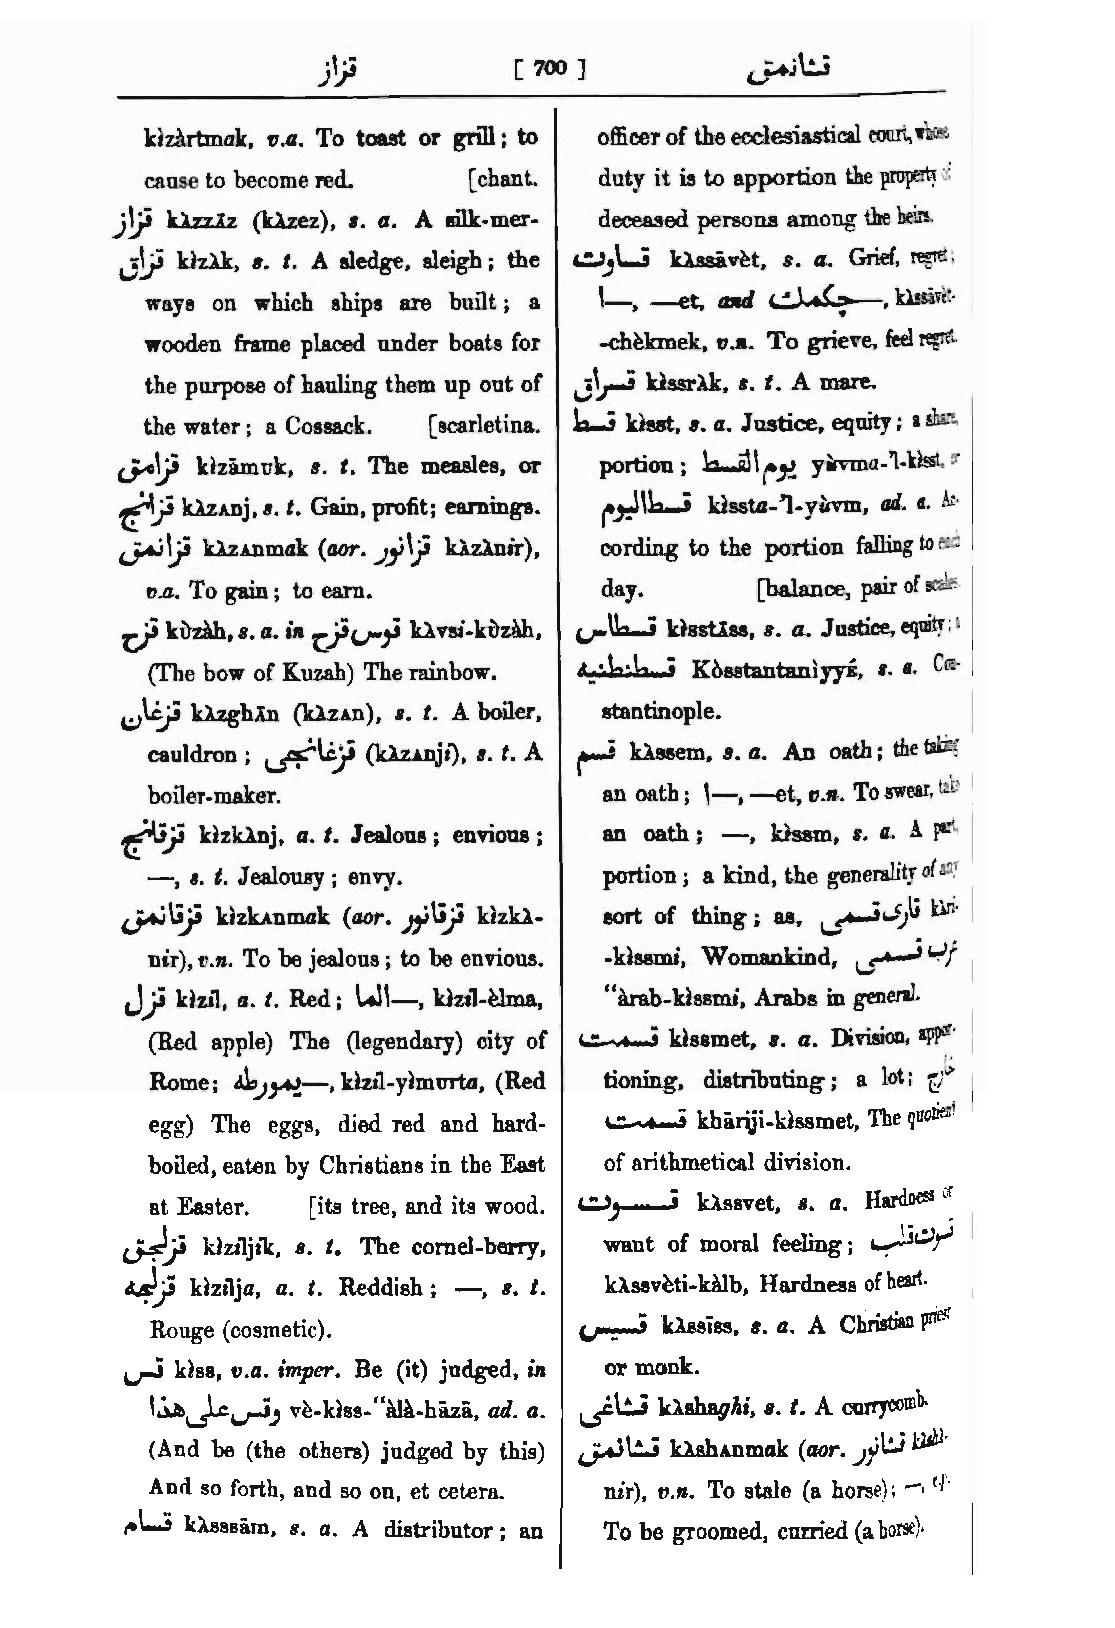 قزاز [ 700 ] قشانمق
kìzàrtmak, v.a. To toast or grill; to
cause to become red. [chant.
قزاز kλzzāz (kλzez), s. a. A silk-mer-
قزاق kìzλk, s. t. A sledge, sleigh; the
ways on which ships are built; a
wooden frame placed under boats for
the purpose of hauling them up out of
the water; a Cossack. [scarletina.
قزامق kìzāmυk, s. t. The measles, or
قزانج kλzᴀnj, s. t. Gain, profit; earnings.
قزانمق kλzᴀnmak (aor. قزانور kλzλnir),
v.a. To gain; to earn.
قزح kὺzàh, s. a. in قوس قزح kλvsi-kὺzàh,
(The bow of Kuzah) The rainbow.
قزغان kλzghān (kλzᴀn), s. t. A boiler,
cauldron; قزغانجی (kλzᴀnji), s. t. A
boiler-maker.
قزقانج kìzkλnj, a. t. Jealous; envious;
—, s. t. Jealousy; envy.
قزقانمق kìzkᴀnmak (aor. قزقانور kìzkλ-
nir), v.n. To be jealous; to be envious.
قزل kìzil, a. t. Red; —الما, kìzil-èlma,
(Red apple) The (legendary) city of
Rome; —یمورطه, kìzil-yìmυrta, (Red
egg) The eggs, died red and hard-
boiled, eaten by Christians in the East
at Easter. [its tree, and its wood.
قزلجق kìziljik, s. t. The cornel-berry,
قزلجه kìzilja, a. t. Reddish; —, s. t.
Rouge (cosmetic).
قس kìss, v.a. imper. Be (it) judged, in
وقس علی هذا vè-kìss-“àlà-hāzā, ad. a.
(And be (the others) judged by this)
And so forth, and so on, et cetera.
قسام kλsssām, s. a. A distributor; an
officer of the ecclesiastical court, whose
duty it is to apportion the property of
deceased persons among the heirs.
قساوت kλssāvèt, s. a. Grief, regret;
—ا, —et, and —چکمك, kλssāvèt-
-chèkmek, v.n. To grieve, feel regret.
قسراق kìssrλk, s. t. A mare.
قسط kìsst, s. a. Justice, equity; a share,
portion; یوم القسط yὺvma-'l-kìsst, or
قسط الیوم kìssta-'l-yὺvm, ad. a. Ac-
cording to the portion falling to each
day. [balance, pair of scales.
قسطاس kìsstāss, s. a. Justice, equity; a
قسطنطنیه Kòsstantanìyyé, s. a. Con-
stantinople.
قسم kλssem, s. a. An oath; the taking
an oath; —ا, —et, v.n. To swear, take
an oath; —, kìssm, s. a. A part,
portion; a kind, the generality of any
sort of thing; as, قاری قسمی kλri-
-kìssmi, Womankind, عرب قسمی
“àrab-kìssmi, Arabs in general.
قسمت kìssmet, s. a. Division, appor-
tioning, distributing; a lot; خارج
قسمت khāriji-kìssmet, The quotient
of arithmetical division.
قسوت kλssvet, s. a. Hardness or
want of moral feeling; قسوت قلب
kλssvèti-kàlb, Hardness of heart.
قسیس kλssīss, s. a. A Christian priest
or monk.
قشاغی kλshaghi, s. t. A currycomb.
قشانمق kλshᴀnmak (aor. قشانور kλshλ-
nir), v.n. To stale (a horse); —,
To be groomed, curried (a horse).